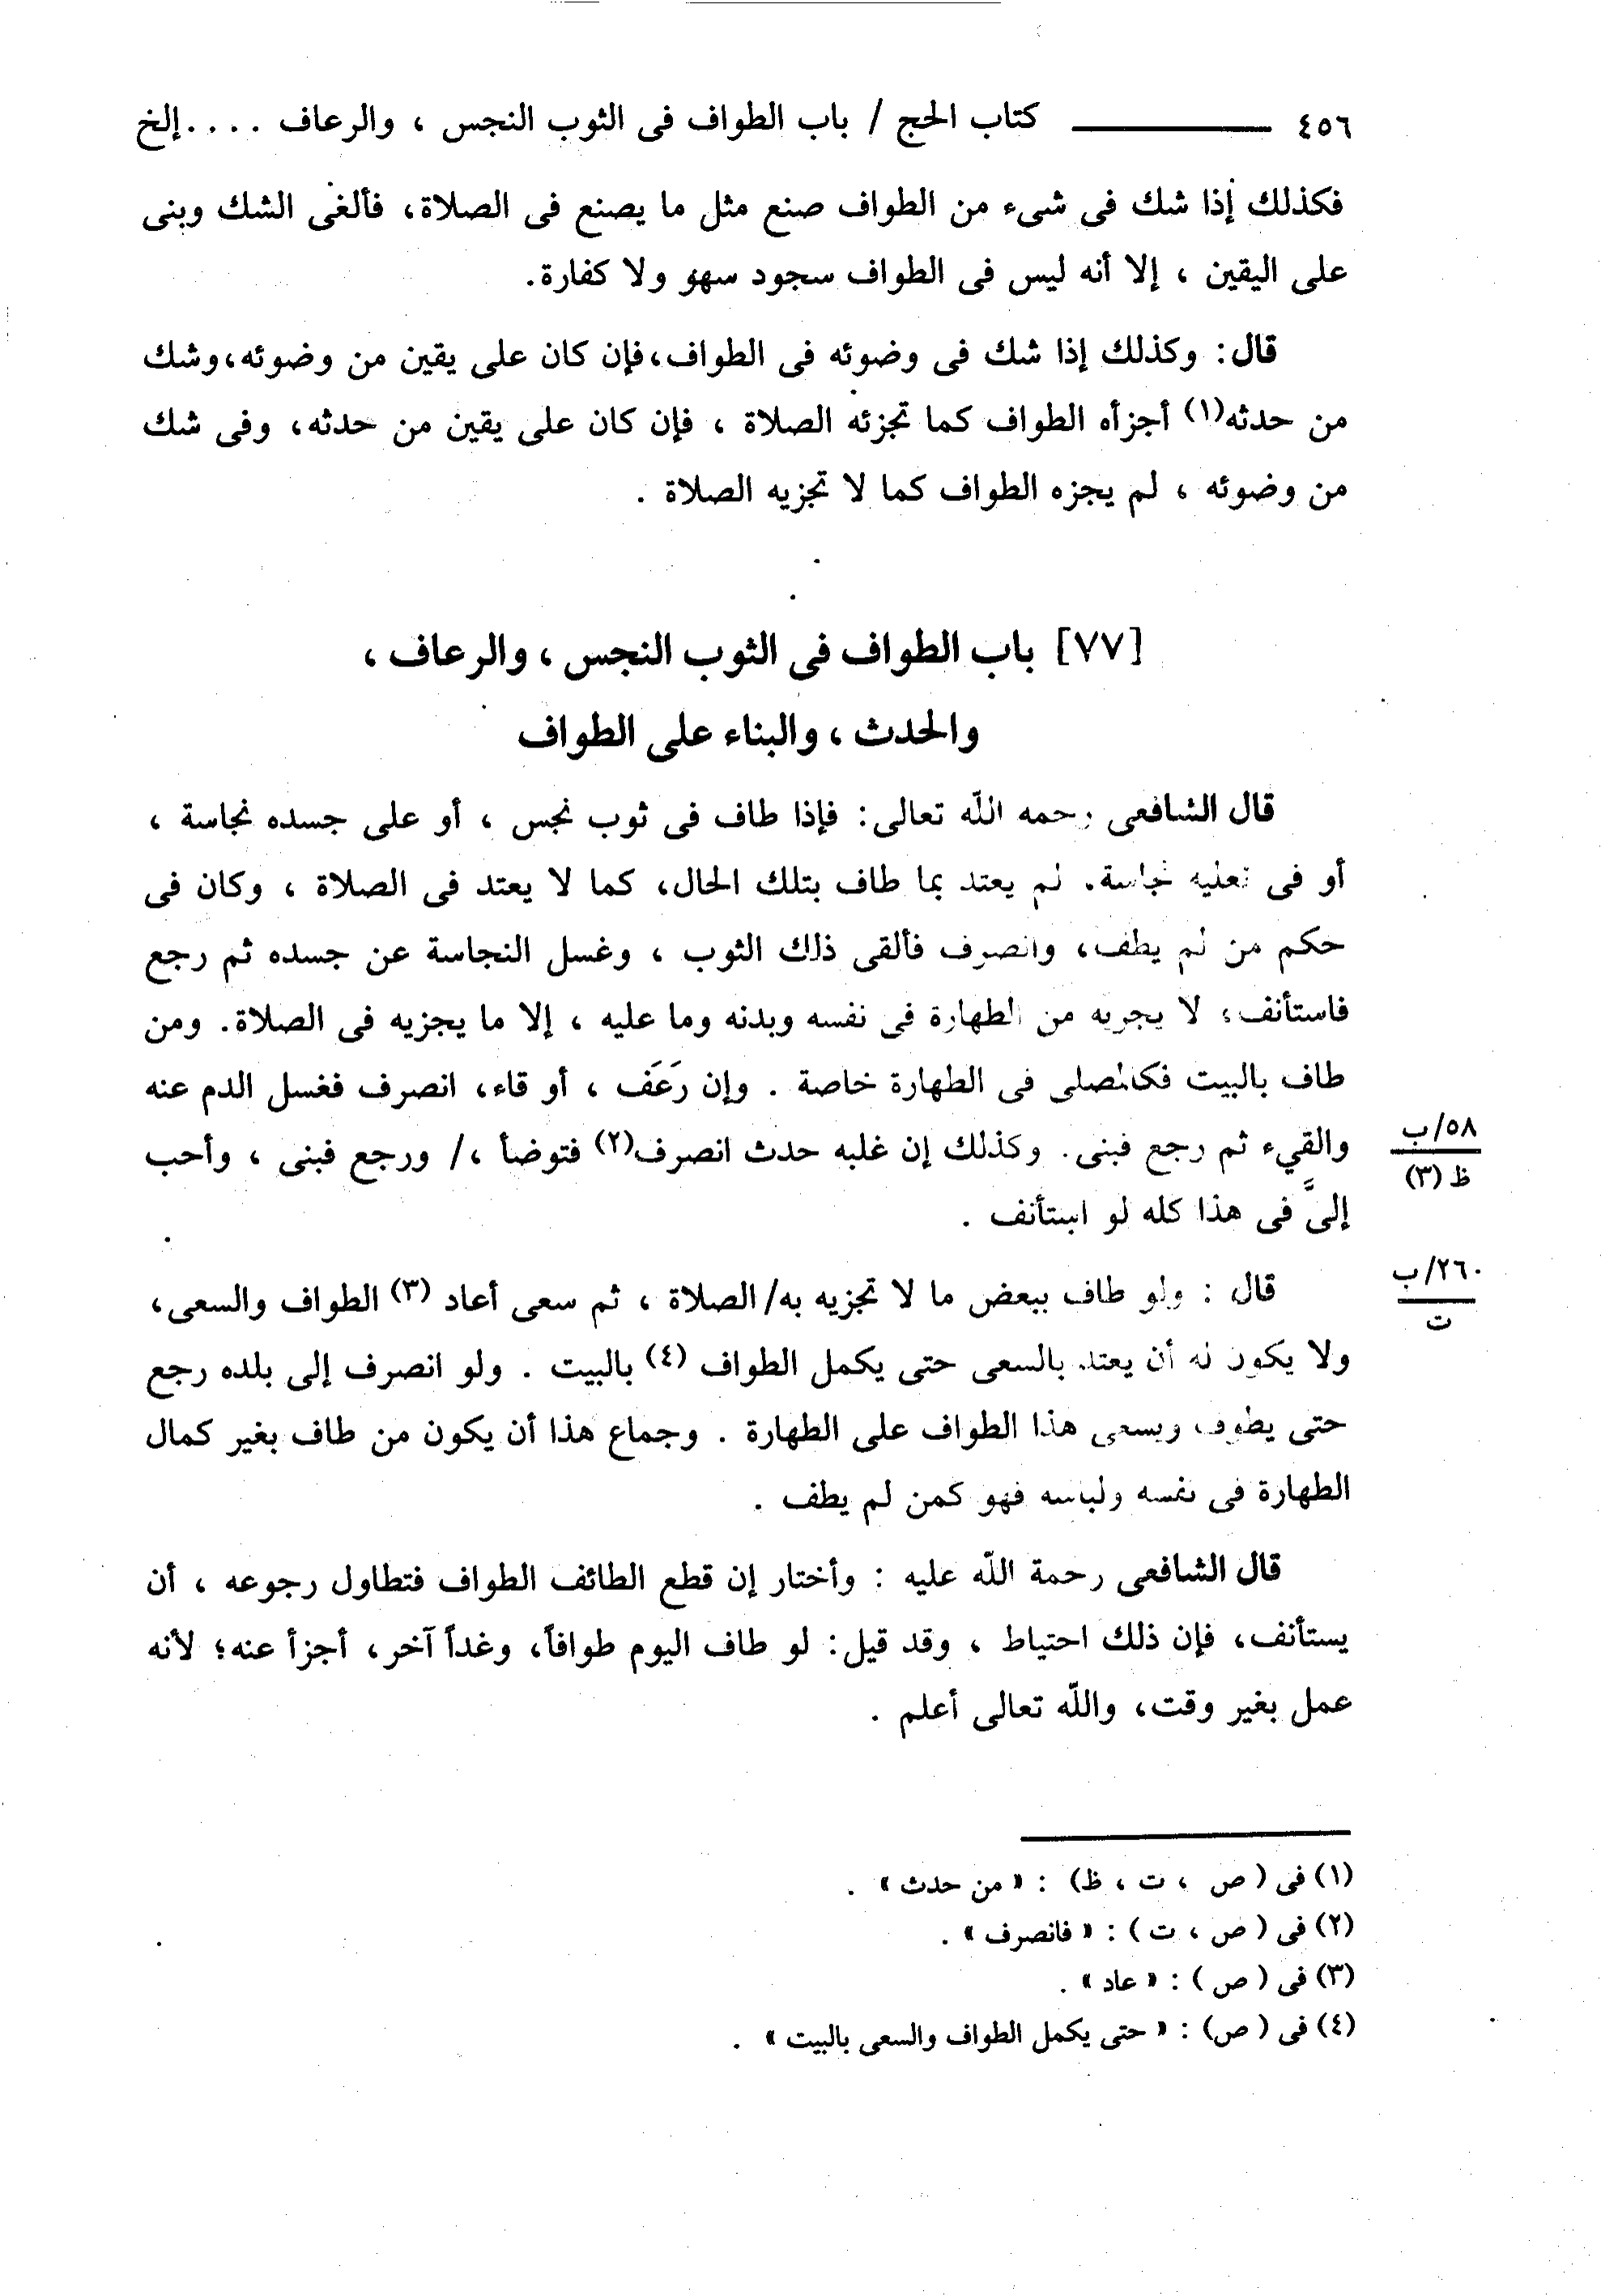 ٤٥٦ ــــــــــ كتاب الحج / باب الطواف فى الثوب النجس ، والرعاف . . . . إلخ
فكذلك إذا شك فى شىء من الطواف صنع مثل ما يصنع فى الصلاة، فألغى الشك وبنى
على اليقين ، إلا أنه ليس فى الطواف سجود سهو ولا كفارة.
قال: وكذلك إذا شك فى وضوئه فى الطواف،فإن كان على يقين من وضوئه،وشك
من حدثه(١) أجزأه الطواف كما تجزئه الصلاة ، فإن كان على يقين من حدثه، وفى شك
من وضوئه ، لم يجزه الطواف كما لا تجزيه الصلاة .
[٧٧] باب الطواف فى الثوب النجس ، والرعاف ،
والحدث ، والبناء على الطواف
قال الشافعى رحمه الله تعالى: فإذا طاف فى ثوب نجس ، أو على جسده نجاسة ،
أو فى نعليه نجاسة. لم يعتد بما طاف بتلك الحال، كما لا يعتد فى الصلاة ، وكان فى
حكم من لم يطف، وانصرف فألقى ذلك الثوب ، وغسل النجاسة عن جسده ثم رجع
فاستأنف، لا يجزيه من الطهارة فى نفسه وبدنه وما عليه ، إلا ما يجزيه فى الصلاة. ومن
طاف بالبيت فكالمصلى فى الطهارة خاصة . وإن رَعَف ، أو قاء، انصرف فغسل الدم عنه
والقىء ثم رجع فبنى. وكذلك إن غلبه حدث انصرف(٢) فتوضأ ،/ ورجع فبنى ، وأحب
٥٨/ب
ظ (٣)
إلىَّ فى هذا كله لو استأنف .
قال : ولو طاف ببعض ما لا تجزيه به/ الصلاة ، ثم سعى أعاد (٣) الطواف والسعى،
٢٦٠/ب
ت
ولا يكون له أن يعتد بالسعى حتى يكمل الطواف (٤) بالبيت . ولو انصرف إلى بلده رجع
حتى يطوف ويسعى هذا الطواف على الطهارة . وجماع هذا أن يكون من طاف بغير كمال
الطهارة فى نفسه ولباسه فهو كمن لم يطف .
قال الشافعى رحمة الله عليه : وأختار إن قطع الطائف الطواف فتطاول رجوعه ، أن
يستأنف، فإن ذلك احتياط ، وقد قيل: لو طاف اليوم طوافاً، وغداً آخر، أجزأ عنه؛ لأنه
عمل بغير وقت، والله تعالى أعلم .
(١) فى ( ص ، ت ، ظ) : « من حدث » .
(٢) فى ( ص ، ت ) : « فانصرف » .
(٣) فى ( ص ) : « عاد » .
(٤) فى ( ص) : « حتى يكمل الطواف والسعى بالبيت » .